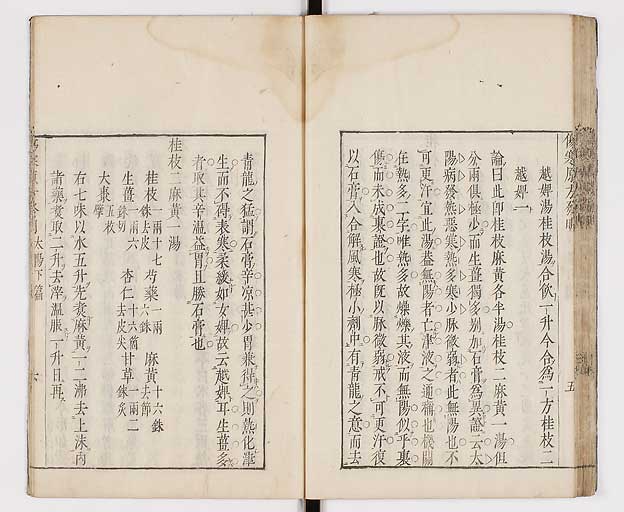 越婢湯桂枝湯合飲一升今合為一方桂枝二
越婢一
論曰此即桂枝麻黃各半湯桂枝二麻黃一湯但
分兩俱極少而生薑獨多別加石膏為異證云太
陽病發熱惡寒熱多寒少脉微弱者此無陽也不
可更汗宜此湯蓋無陽者亡津液之通稱也機關
在熱多二字唯熱多故爍爍其液而無陽似乎裏
傷而未成裏證也故既以脉微弱戒不可更汗復
以石膏入合解風寒極小劑中有青龍之意而去
青龍之猛謂石膏辛涼甚少胃乘得之則熱化津
生而不得表寒柔緩如女婢故云越婢耳生薑多
者取其辛溫益胃且勝石膏也
桂枝二麻黃一湯
桂枝一兩十七銖去皮 芍藥一兩六銖 麻黃十六銖去節
生薑一兩六銖切 杏仁十六箇去皮尖 甘草一兩二銖炙
大棗五枚擘
右七味以水五升先煑麻黃一二沸去上沫內
諸藥煑取二升去滓溫服一升日再
太陽下篇
六
五